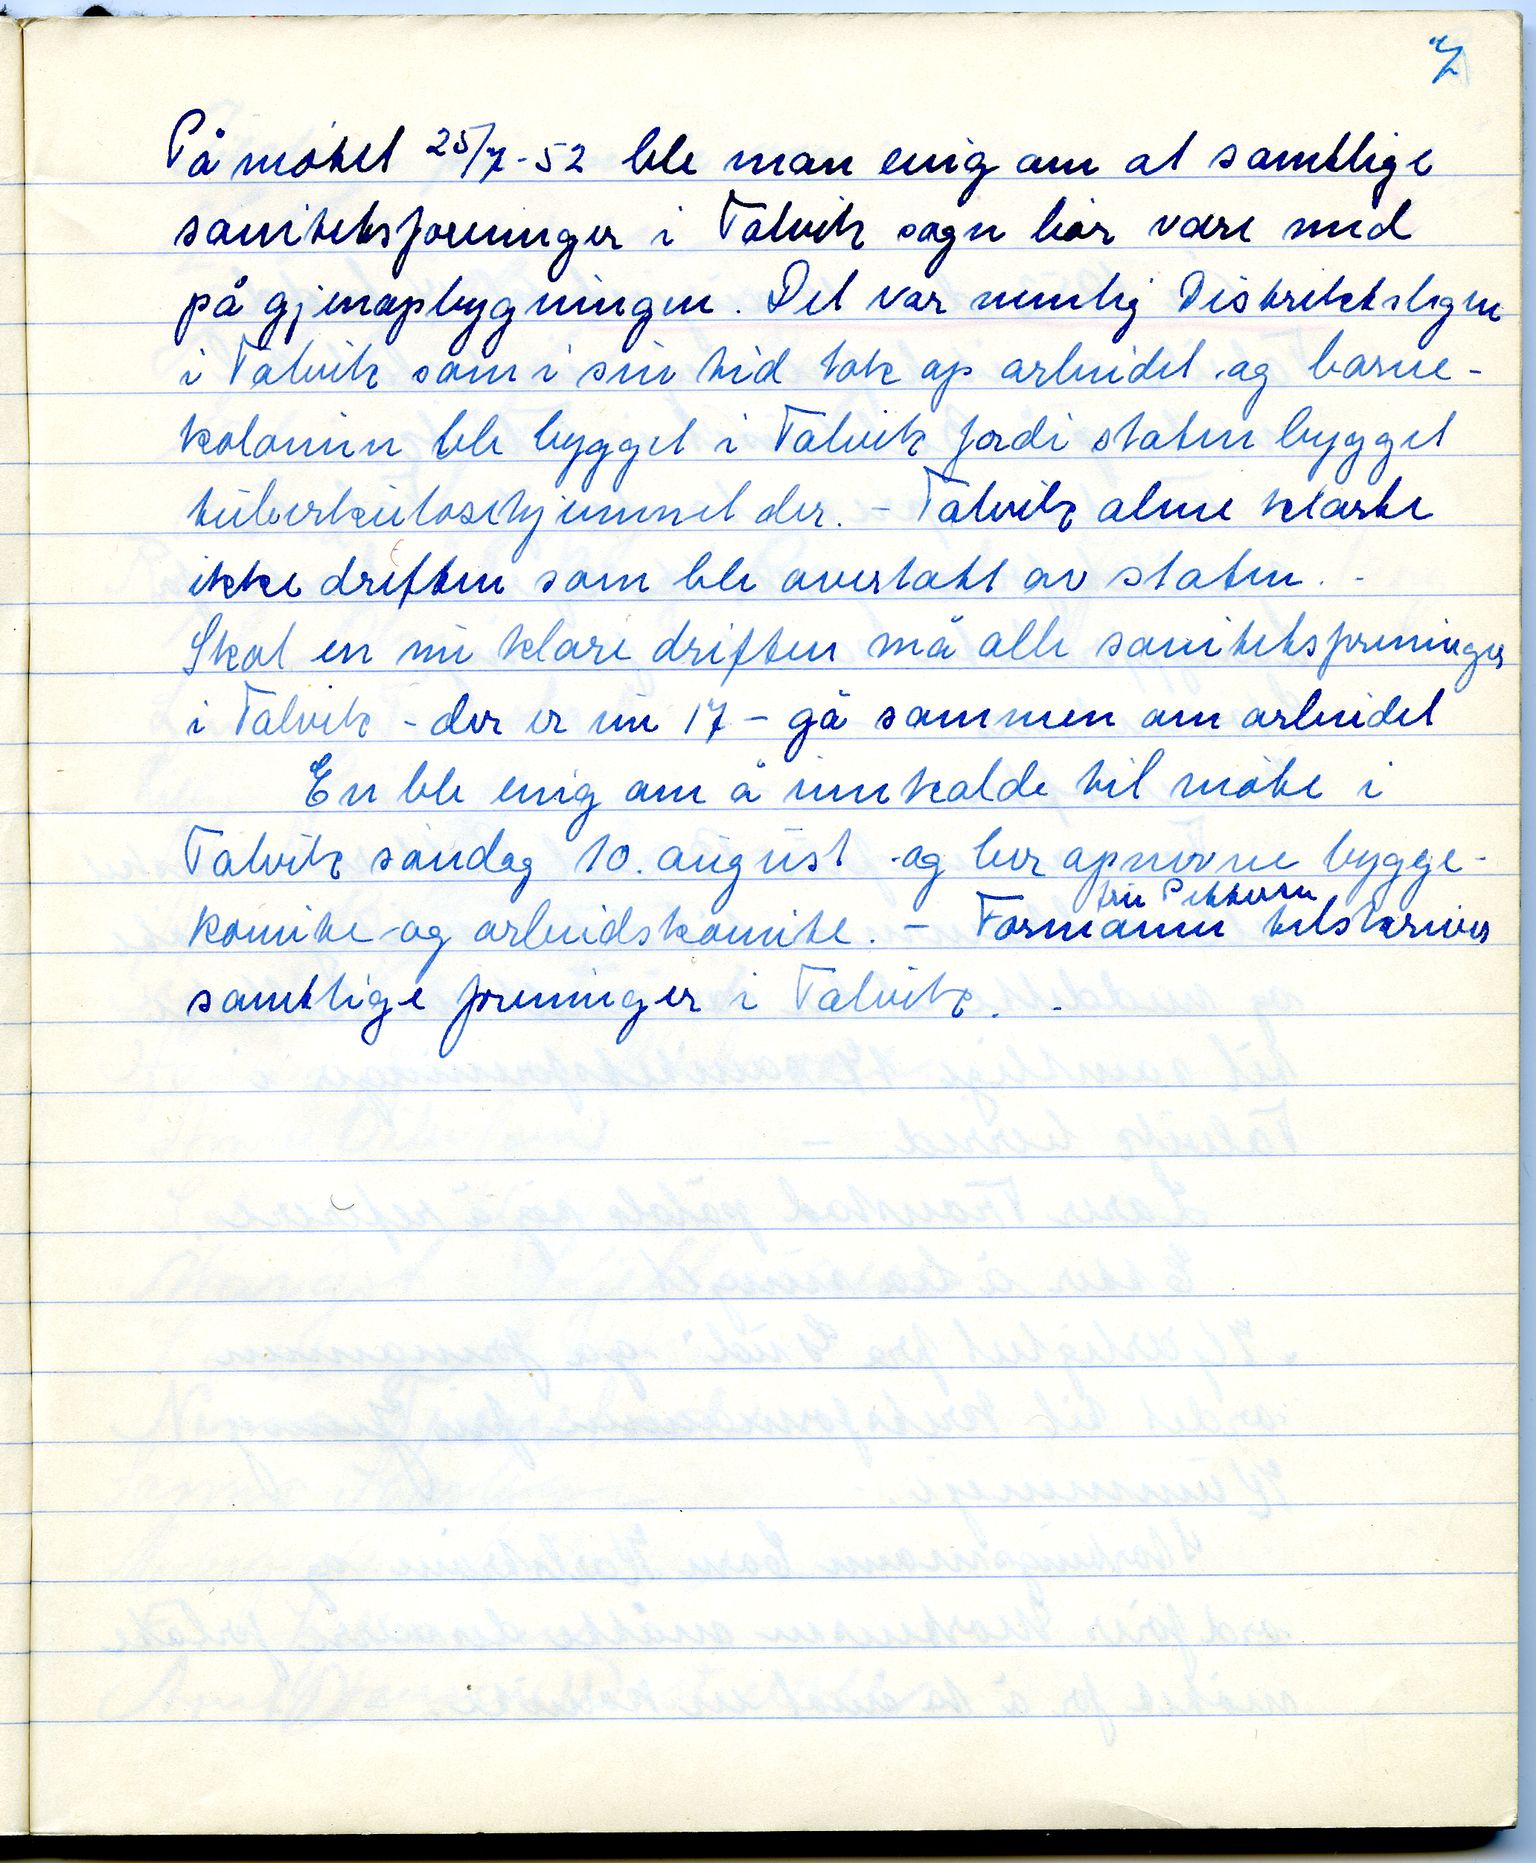 7
På møtet 25/7-52 ble man enig om at samtlige
sanitetsforeninger i Talvik sogn bør være med
på gjenopbygningen. Det var nemlig Distriktslegen
i Talvik som i sin tid tok op arbeidet og barne-
kolonien ble bygget i Talvik fordi staten bygget
tuberkulosehjemmet der. - Talvik alene klarte
ikke driften som ble overtatt av staten. -
Skal en nu klare driften må alle sanitetsforeninger
i Talvik - der er nu 17 - gå sammen om arbeidet
En ble enig om å innkalde til møte i
Talvik søndag 10. august og her opnevne bygge-
komite og arbeidskomite. - Formannen fru Pettersen tilskriver
samtlige foreninger i Talvik. -